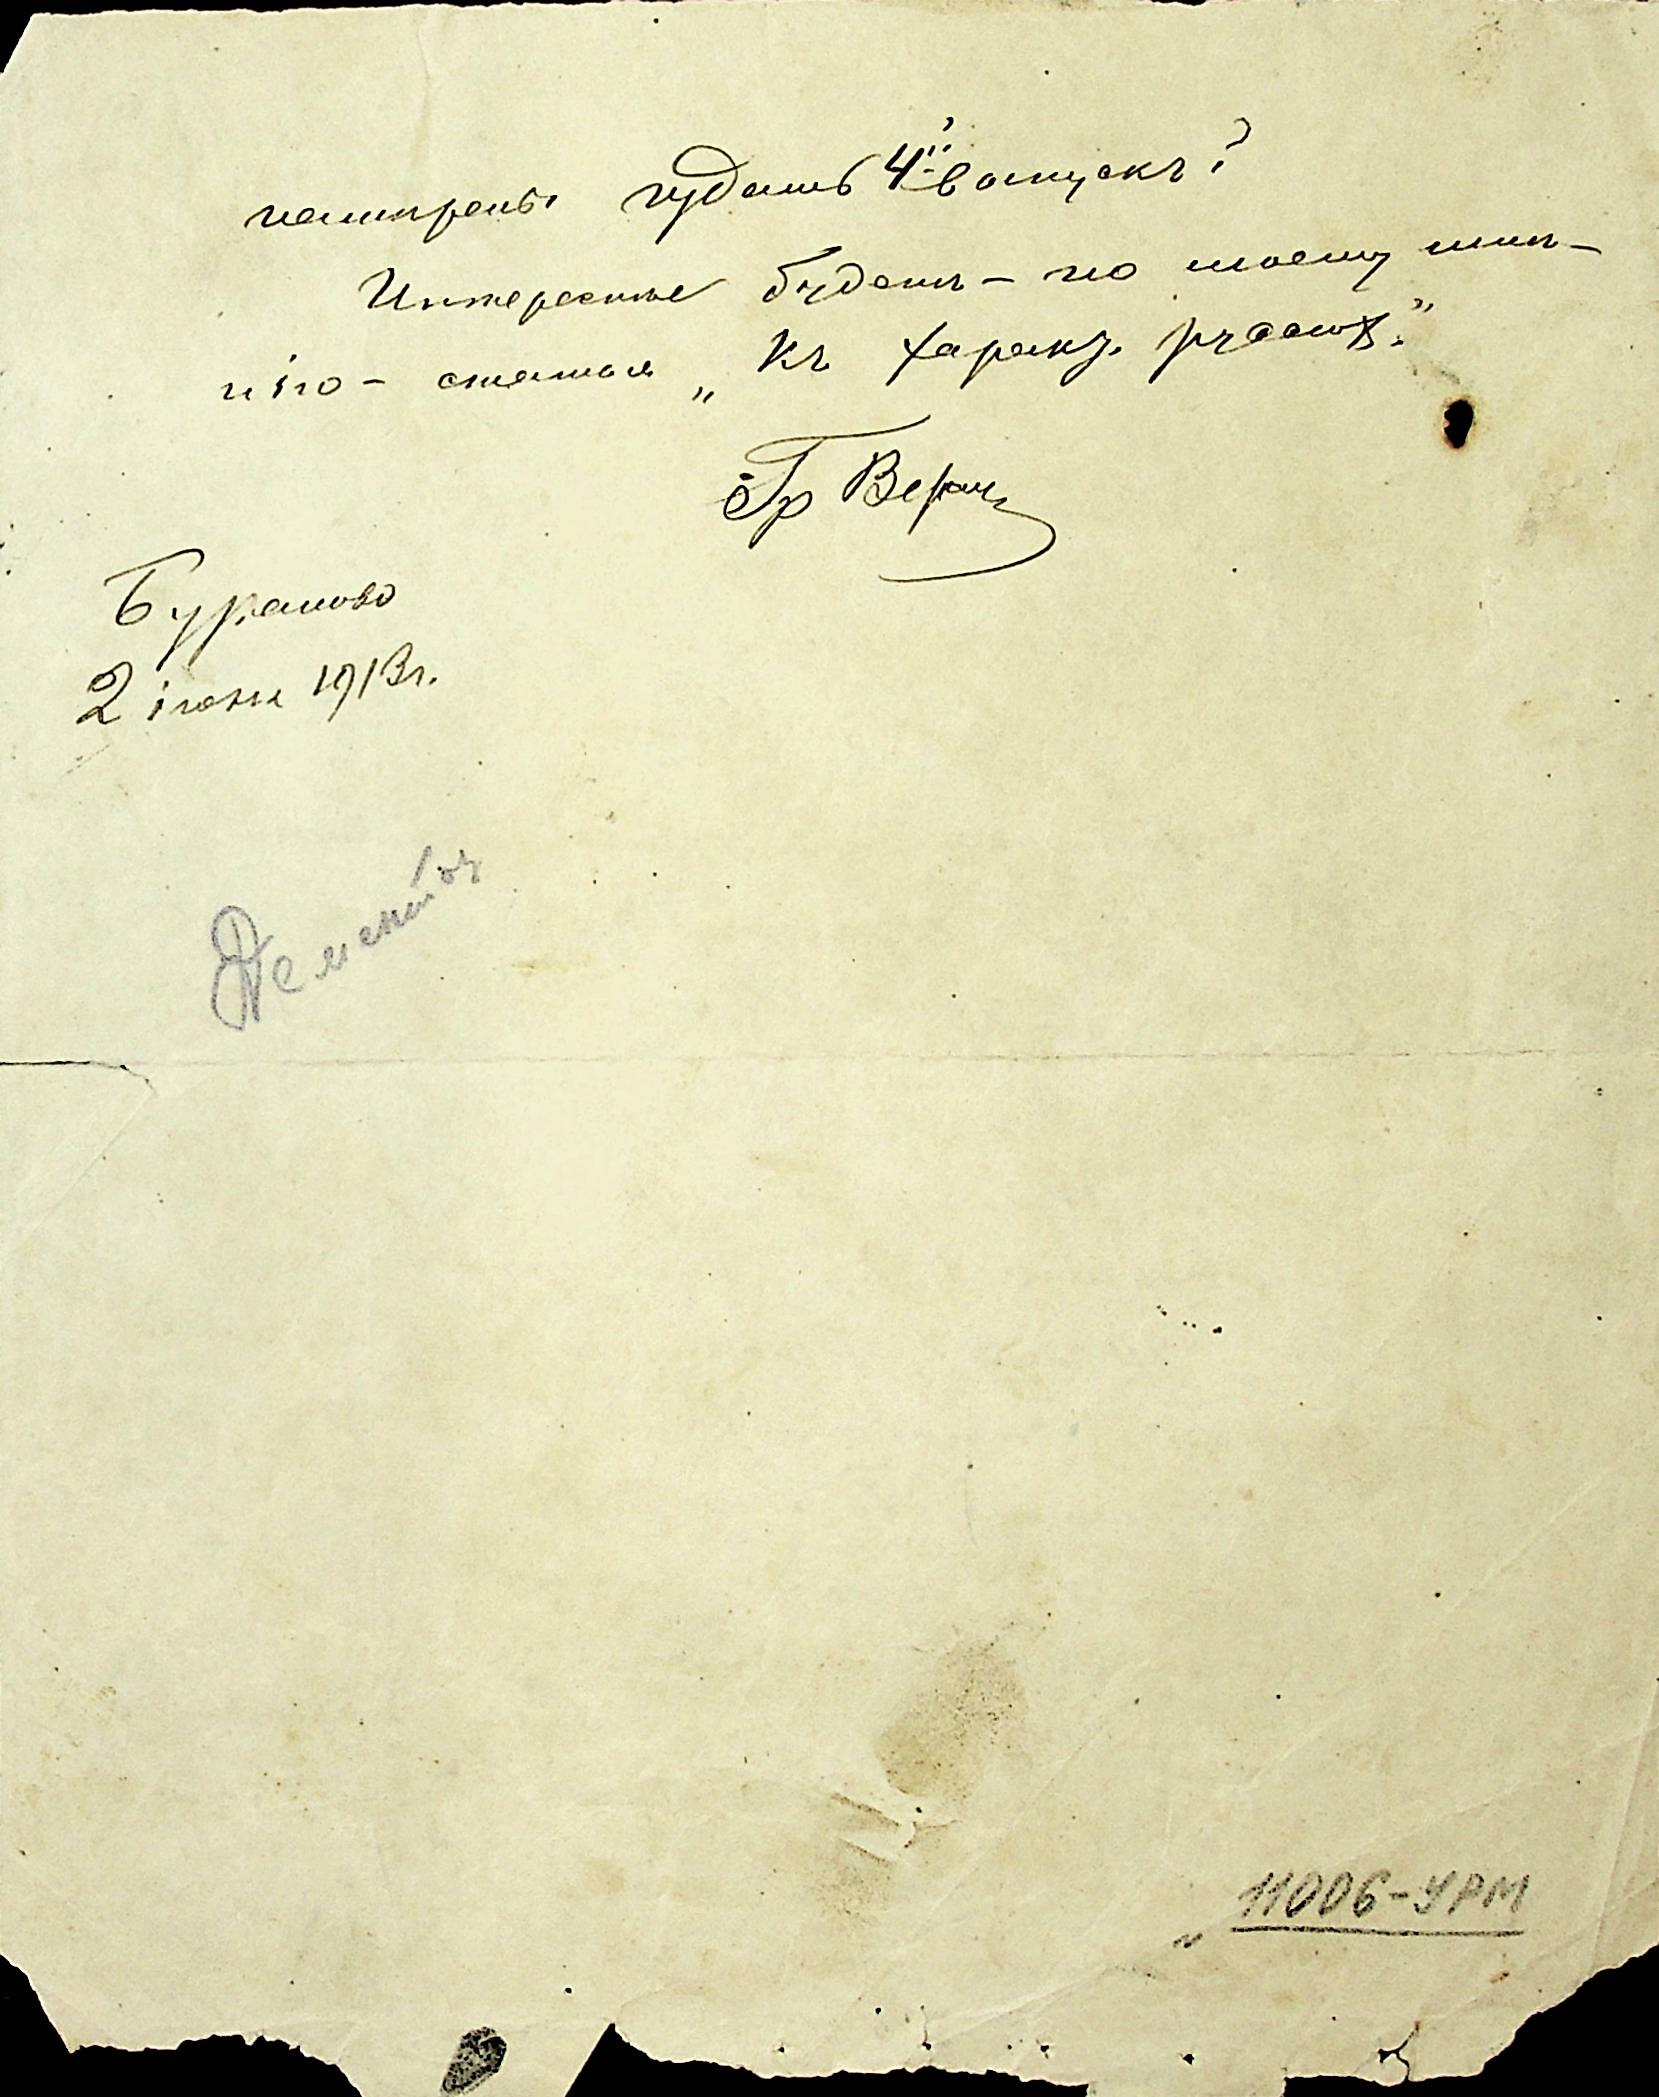 намѣрены издать 4й выпускъ?
Интереснѣе будетъ – по моему мнѣ-
нію – статья „Къ характ.
Гр Верещ
Бураново
2 іюня 1913 г.
11006-УРМ